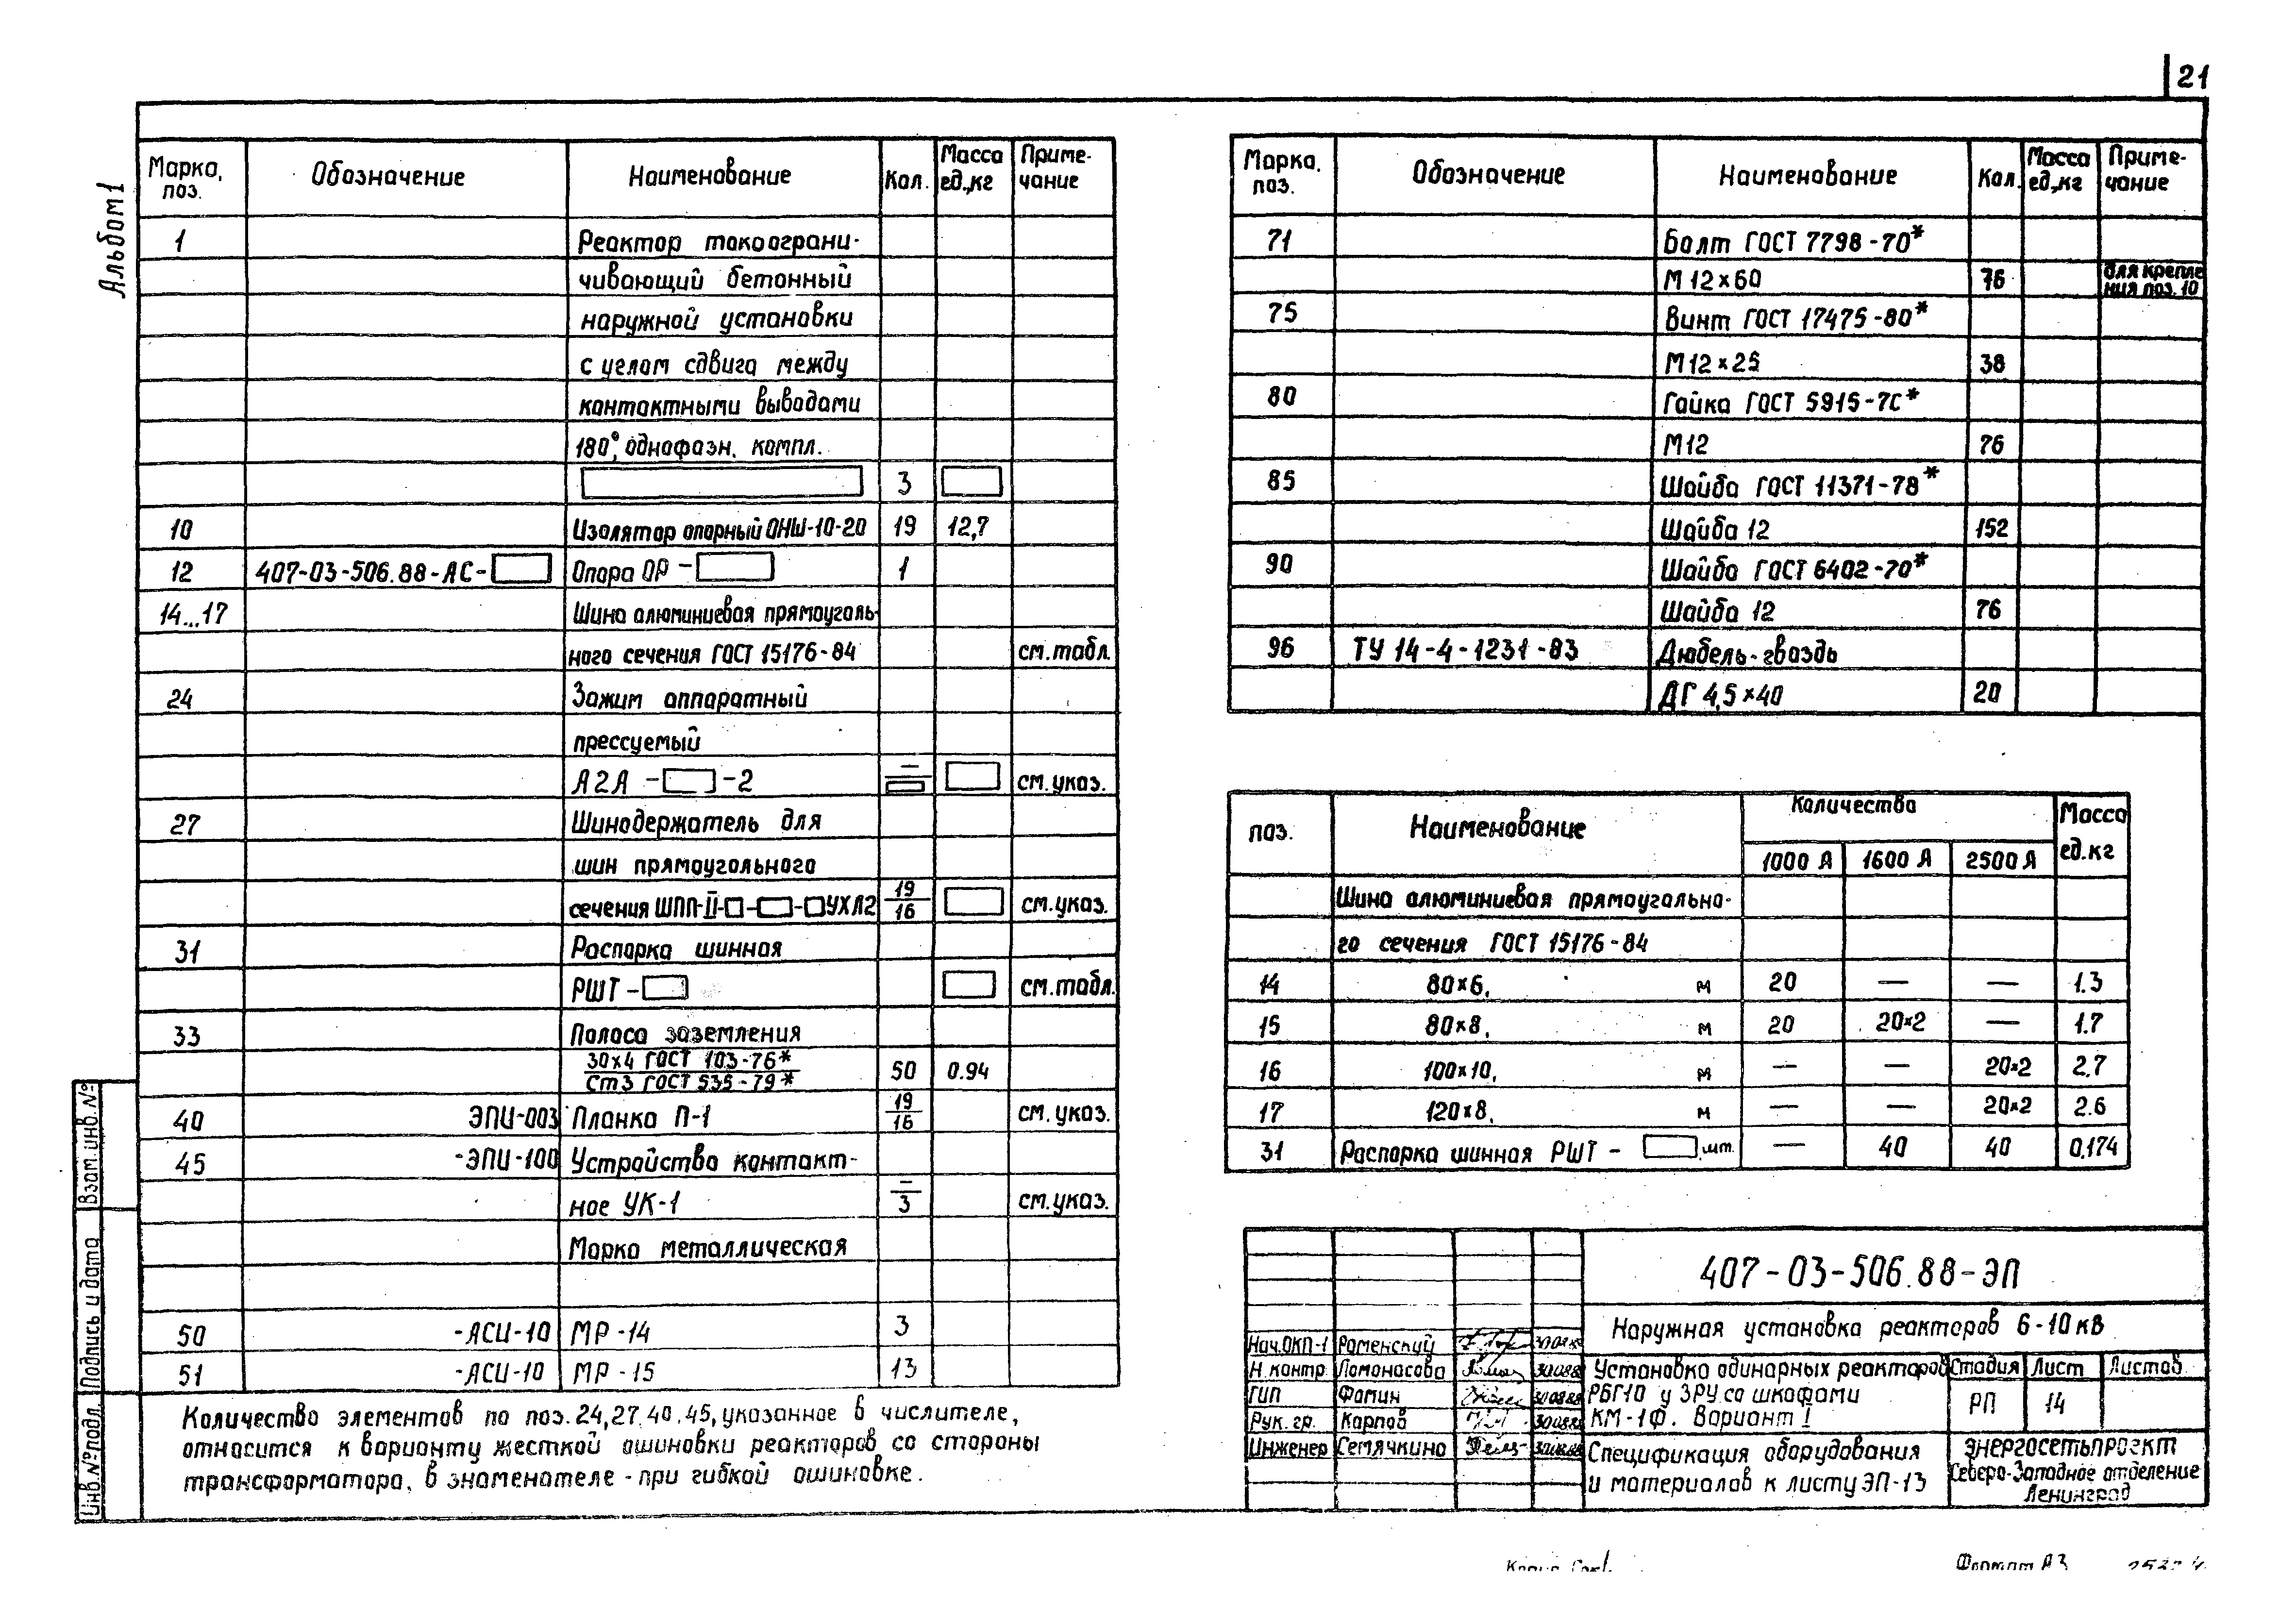 21
Альбом 1
Марка, поз. Обозначение Наименование Кол. Масса ед.,кг Приме-чание
1 Реактор токоограни-
чивающий бетонный
наружной установки
с углом сдвига между
контактными выводами
180°, однофазн. компл.
3
10 Изолятор опорный ОНШ-10-20 19 12,7
12 407-03-506.88-АС- Опора ОР - 1
14...17 Шина алюминиевая прямоуголь-
ного сечения ГОСТ 15176-84 см.табл.
24 Зажим аппаратный
прессуемый
А2А - -2 — см.указ.
27 Шинодержатель для
шин прямоугольного
сечения ШПП-II- - - УХЛ2 19/16 см.указ.
31 Распорка шинная
РШТ - см.табл.
33 Полоса заземления
30х4 ГОСТ 103-76*
Ст3 ГОСТ 535-79* 50 0.94
40 ЭПИ-003 Планка П-1 19/16 см.указ.
45 -ЭПИ-100 Устройство контакт-
ное УК-1 –/3 см.указ.
Марка металлическая
50 -АСИ-10 МР-14 3
51 -АСИ-10 МР-15 13
Количество элементов по поз. 24,27,40,45, указанное в числителе,
относится к варианту жесткой ошиновки реакторов со стороны
трансформатора, в знаменателе - при гибкой ошиновке.
Марка, поз. Обозначение Наименование Кол. Масса ед.,кг Приме-чание
71 Болт ГОСТ 7798-70*
М12х60 76 для крепле
ния поз. 10
75 Винт ГОСТ 17475-80*
М12х25 38
80 Гайка ГОСТ 5915-7С*
М12 76
85 Шайба ГОСТ 11371-78*
Шайба 12 152
90 Шайба ГОСТ 6402-70*
Шайба 12 76
96 ТУ 14-4-1231-83 Дюбель-гвоздь
ДГ 4,5х40 20
поз. Наименование Количество Масса ед.кг
1000 А 1600 А 2500 А
Шина алюминиевая прямоугольно-
го сечения ГОСТ 15176-84
14 80х6, м 20 — — 1.3
15 80х8, м 20 20х2 — 1.7
16 100х10, м — — 20х2 2,7
17 120х8, м — — 20х2 2.6
31 Распорка шинная РШТ - ,шт. — 40 40 0,174
407-03-506.88-ЭП
Наружная установка реакторов 6-10 кВ
Нач.ОКП-1 Роменский
Н. контр. Ломоносова
ГИП Фомин
Рук. гр. Карпов
Инженер Семячкина
Установка одинарных реакторов
РБГ10 у ЗРУ со шкафами
КМ-1Ф. Вариант I
Стадия Лист Листов
РП 14
Спецификация оборудования
и материалов к листу ЭП-13
ЭНЕРГОСЕТЬПРОЕКТ
Северо-Западное отделение
Ленинград
Инв.№подл. Подпись и дата Взам.инв.№
Формат А3